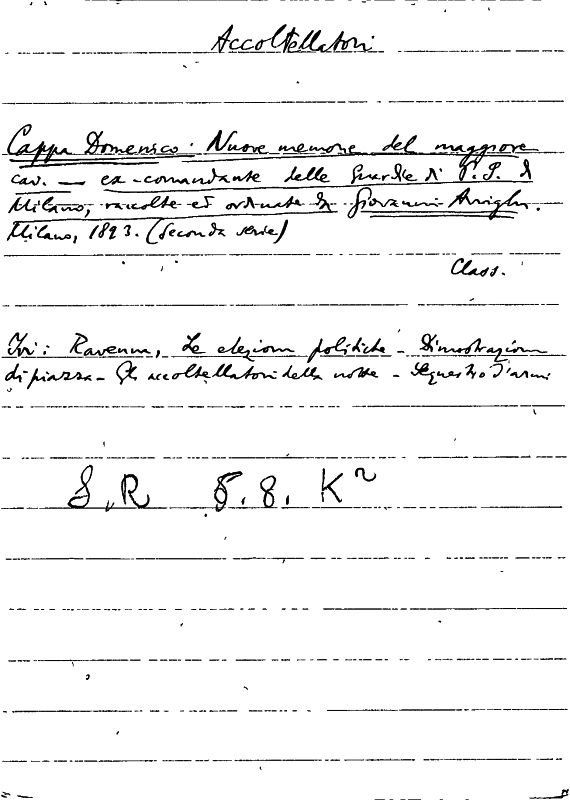 Accoltellatori
Cappa Domenico: Nuove memorie del maggiore
cav. — ex-comandante delle Guardie di P.S. di
Milano, raccolte ed ordinate da Giovanni Arrighi.
Milano, 1893. (Seconda serie)
Class.
Ivi: Ravenna, Le elezioni politiche - Dimostrazioni
di piazza - Gli accoltellatori della notte - Sequestro d'armi
S.R 5.8. K²